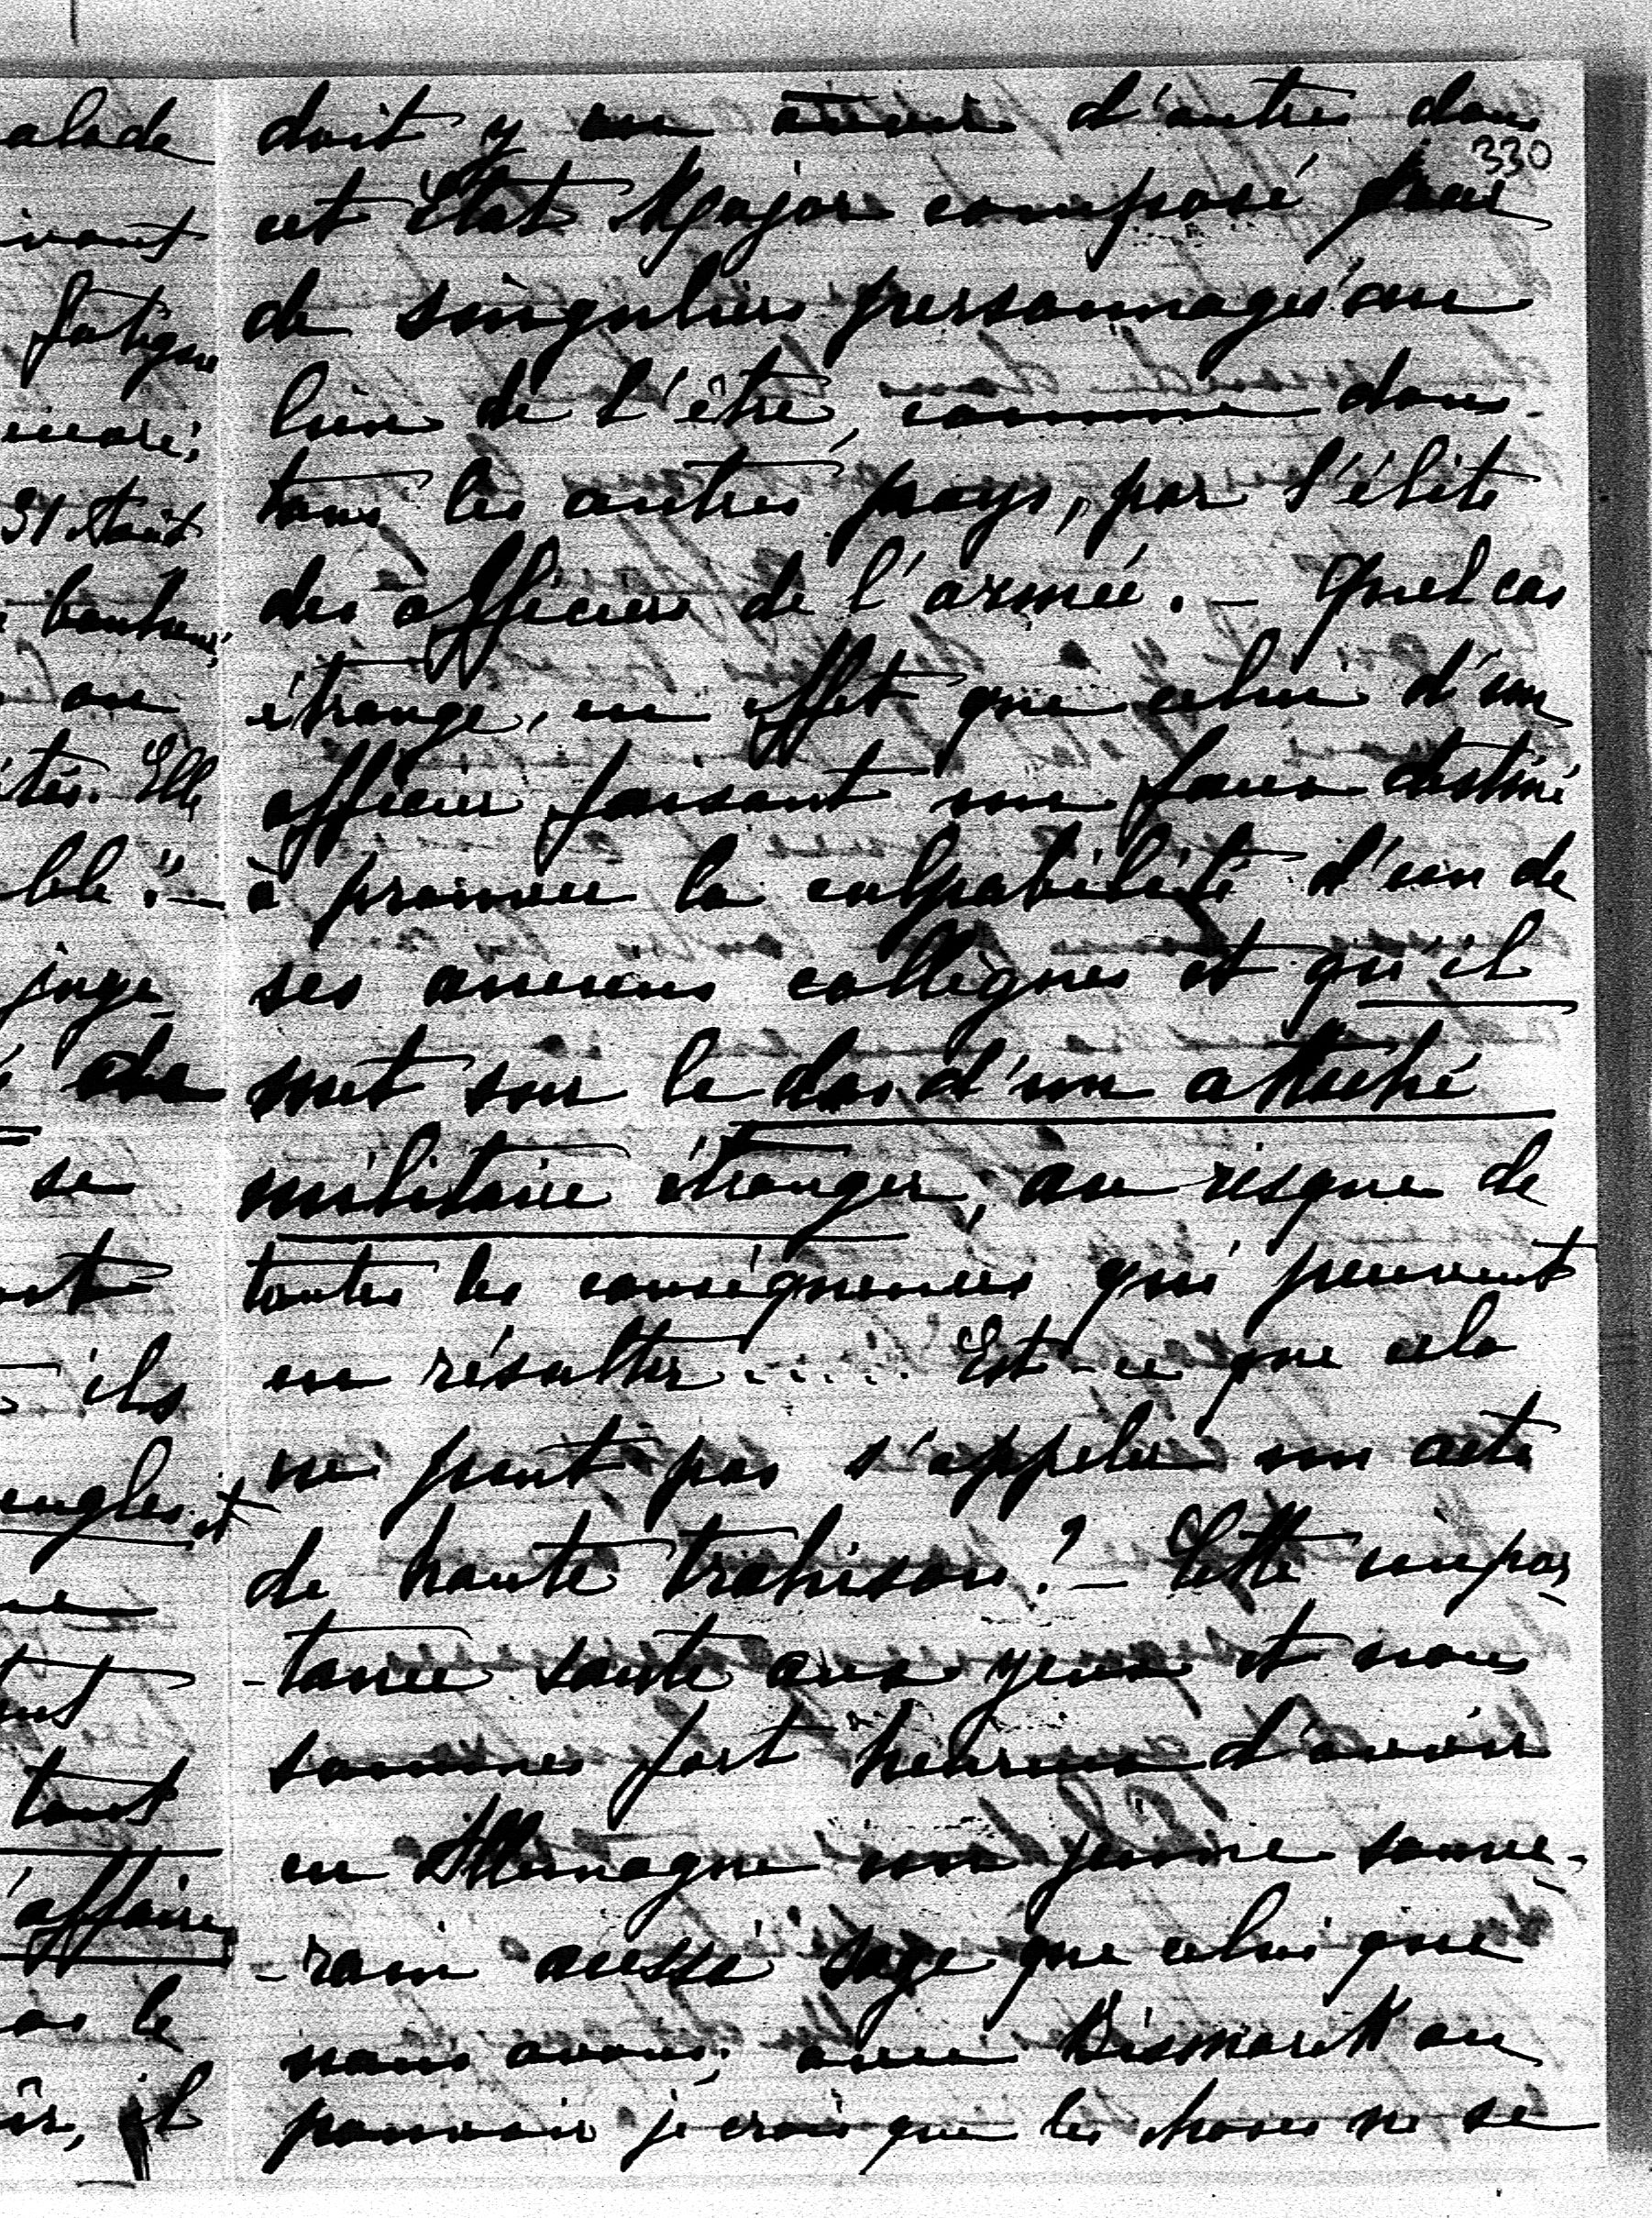 330
doit y en avoir d'autres dans
cet État Major composé
de singuliers personnages au
lieu de l'être, comme dans
tous les autres pays, par l'élite
des officiers de l'armée. — Quel cas
étrange, en effet que celui d'un
officier faisant un faux destiné
à prouver la culpabilité d'un de
ses anciens collègues et qu'il
met sur le dos d'un attaché
militaire étranger, au risque de
toutes les conséquences qui peuvent
en résulter...... Est-ce que cela
ne peut pas s'appeler un acte
de haute trahison? — Cette impor
-tance saute aux yeux et nous
sommes fort heureux d'avoir
en Allemagne un jeune souve-
-rain aussi sage que celui que
nous avons; avec Bismarck au
pouvoir je crois que les choses ne se
alade
ivant
fatigue
31 Août
on
ités. Elle
juge
de
se
ils
eugles et
tout
'affaire
le
il